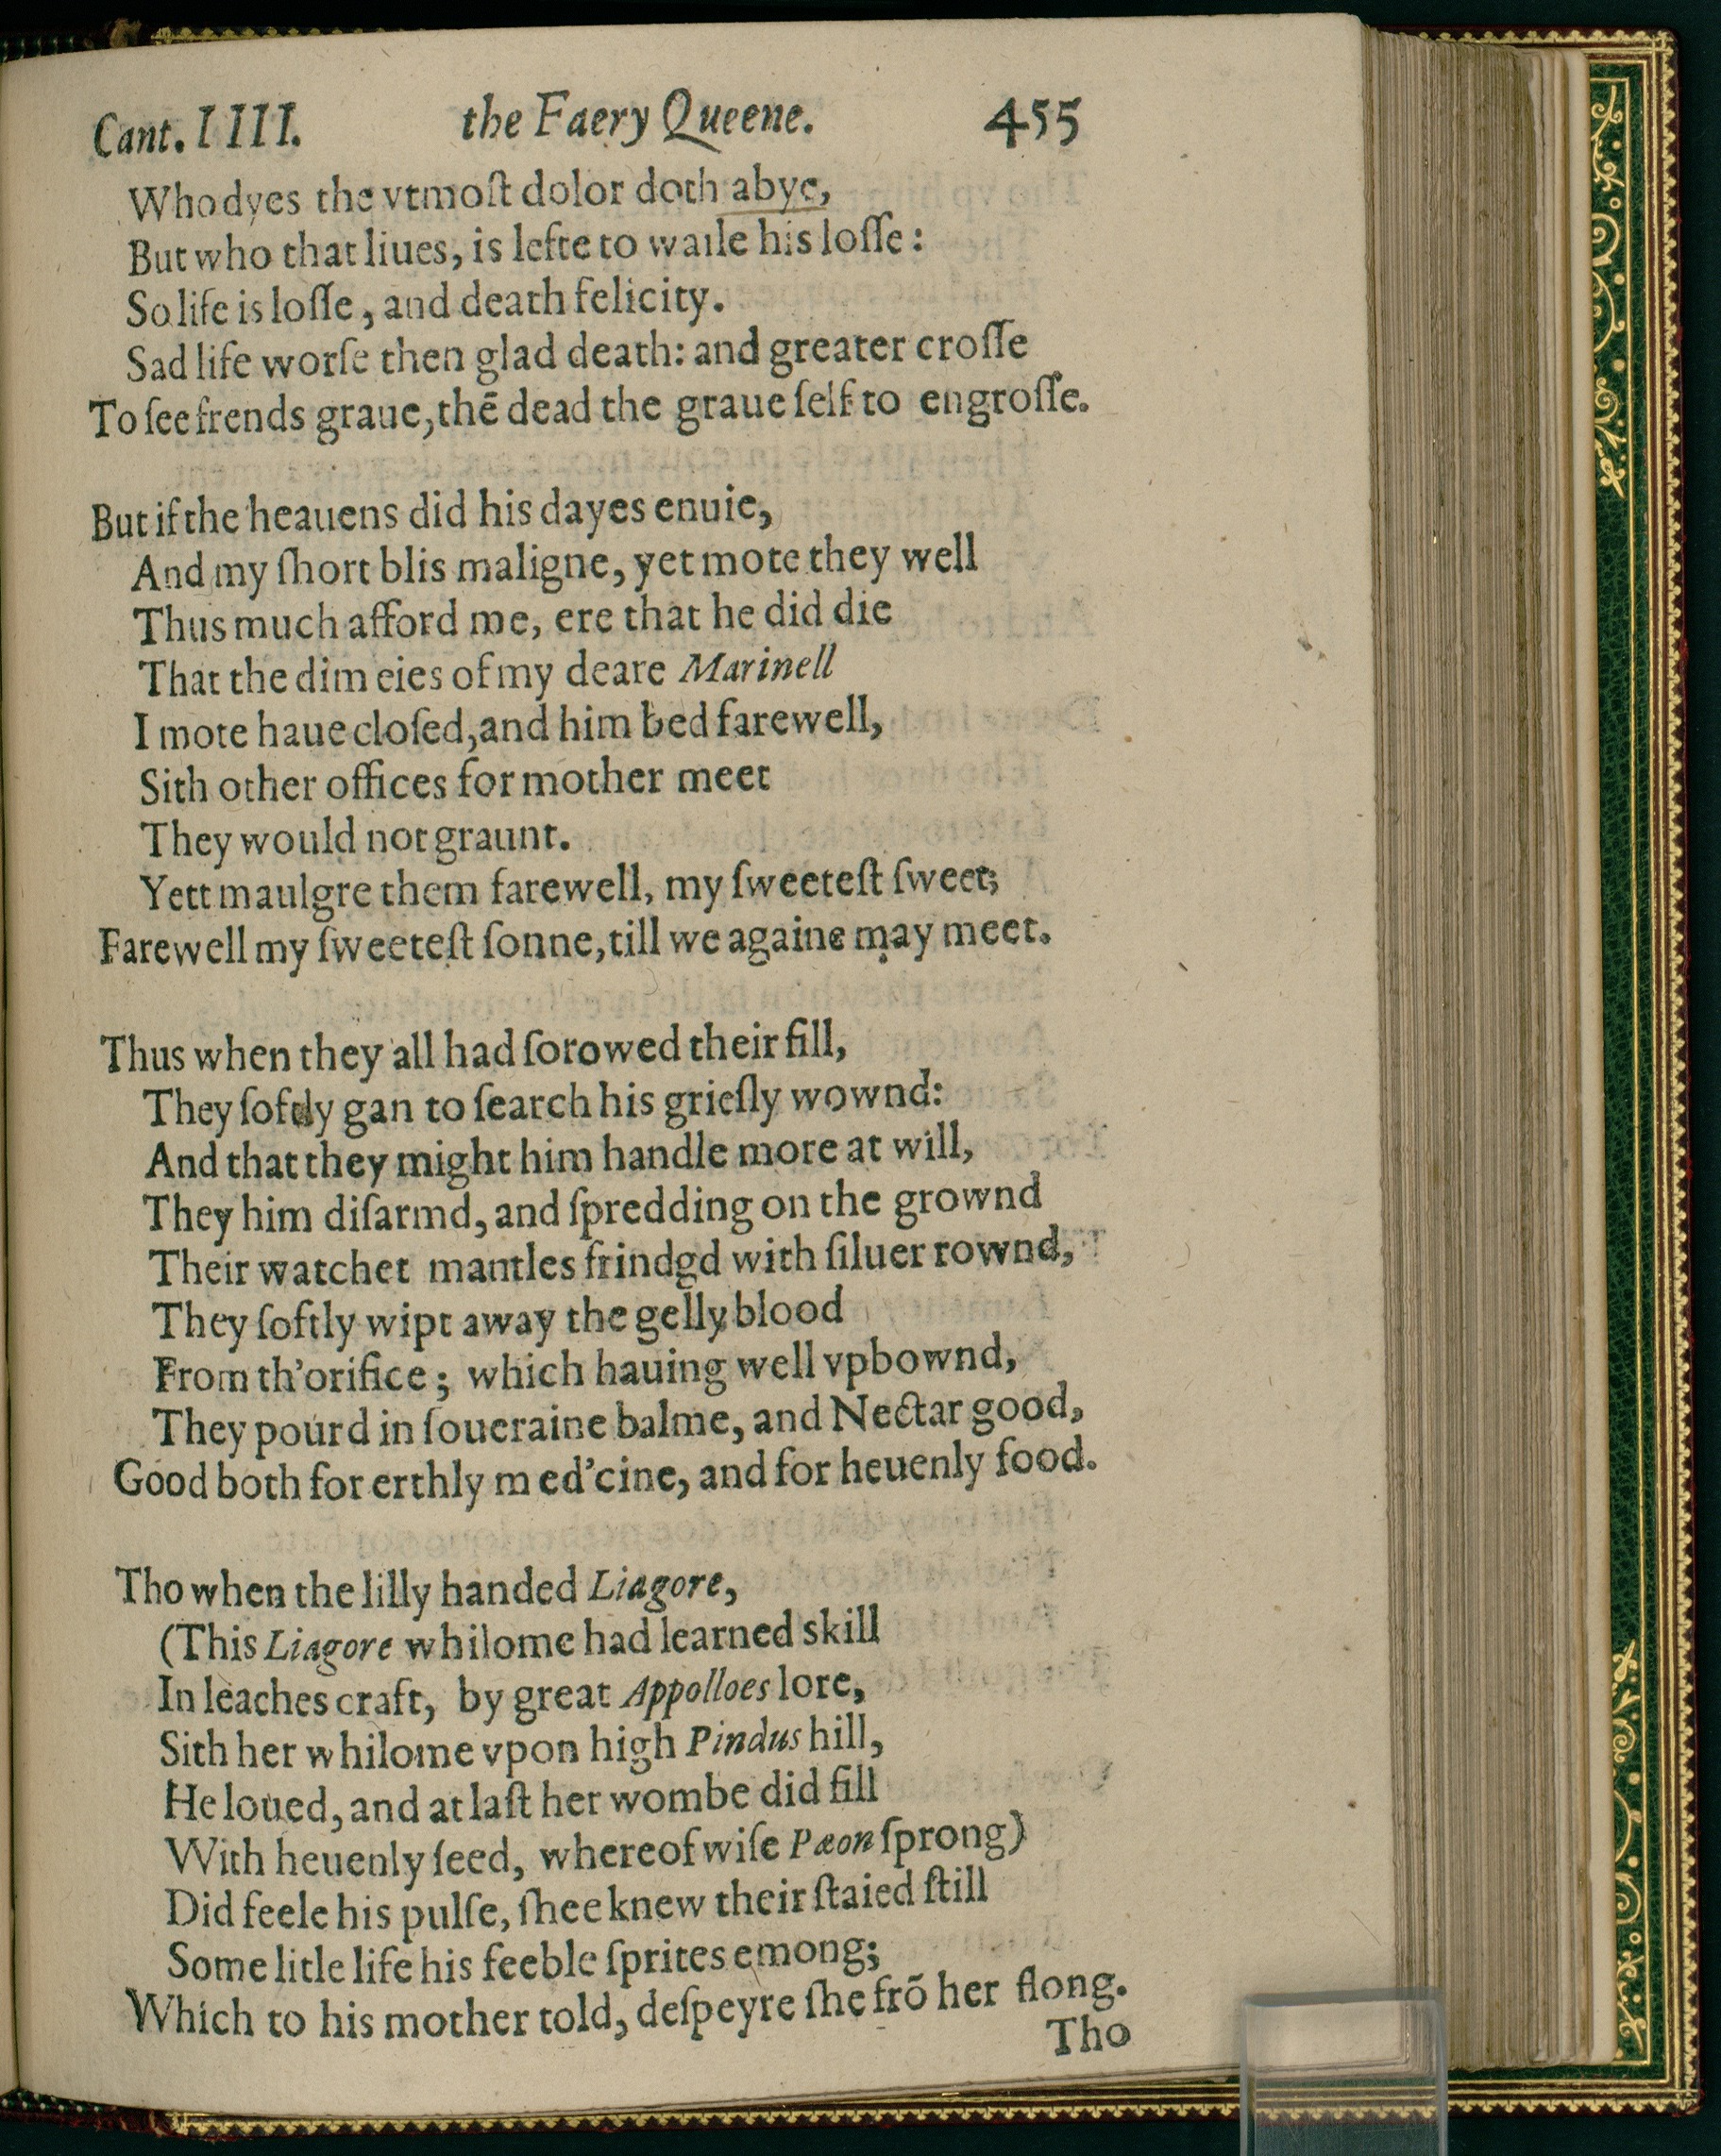 Cant. IIII. the Faery Queene. 455
Who dyes the vtmoſt dolor doth abye,
But who that liues, is lefte to waile his loſſe:
So life is loſſe, and death felicity.
Sad life worſe then glad death: and greater croſſe
To ſee frends graue, thē dead the graue ſelf to engroſſe.
But if the heauens did his dayes enuie,
And my ſhort blis maligne, yet mote they well
Thus much afford me, ere that he did die
That the dim eies of my deare Marinell
I mote haue cloſed, and him bed farewell,
Sith other offices for mother meet
They would not graunt.
Yett maulgre them farewell, my ſweeteſt ſweet;
Farewell my ſweeteſt ſonne, till we againe may meet.
Thus when they all had ſorowed their fill,
They ſoftly gan to ſearch his grieſly wownd:
And that they might him handle more at will,
They him diſarmd, and ſpredding on the grownd
Their watchet mantles frindgd with ſiluer rownd,
They ſoftly wipt away the gelly blood
From th'orifice; which hauing well vpbownd,
They pourd in ſoueraine balme, and Nectar good,
Good both for erthly med'cine, and for heuenly food.
Tho when the lilly handed Liagore,
(This Liagore whilome had learned skill
In leaches craft, by great Appolloes lore,
Sith her whilome vpon high Pindus hill,
He loued, and at laſt her wombe did fill
With heuenly ſeed, whereof wiſe Pæon ſprong)
Did feele his pulſe, ſhee knew their ſtaied ſtill
Some litle life his feeble ſprites emong;
Which to his mother told, deſpeyre ſhe frō her flong.
Tho